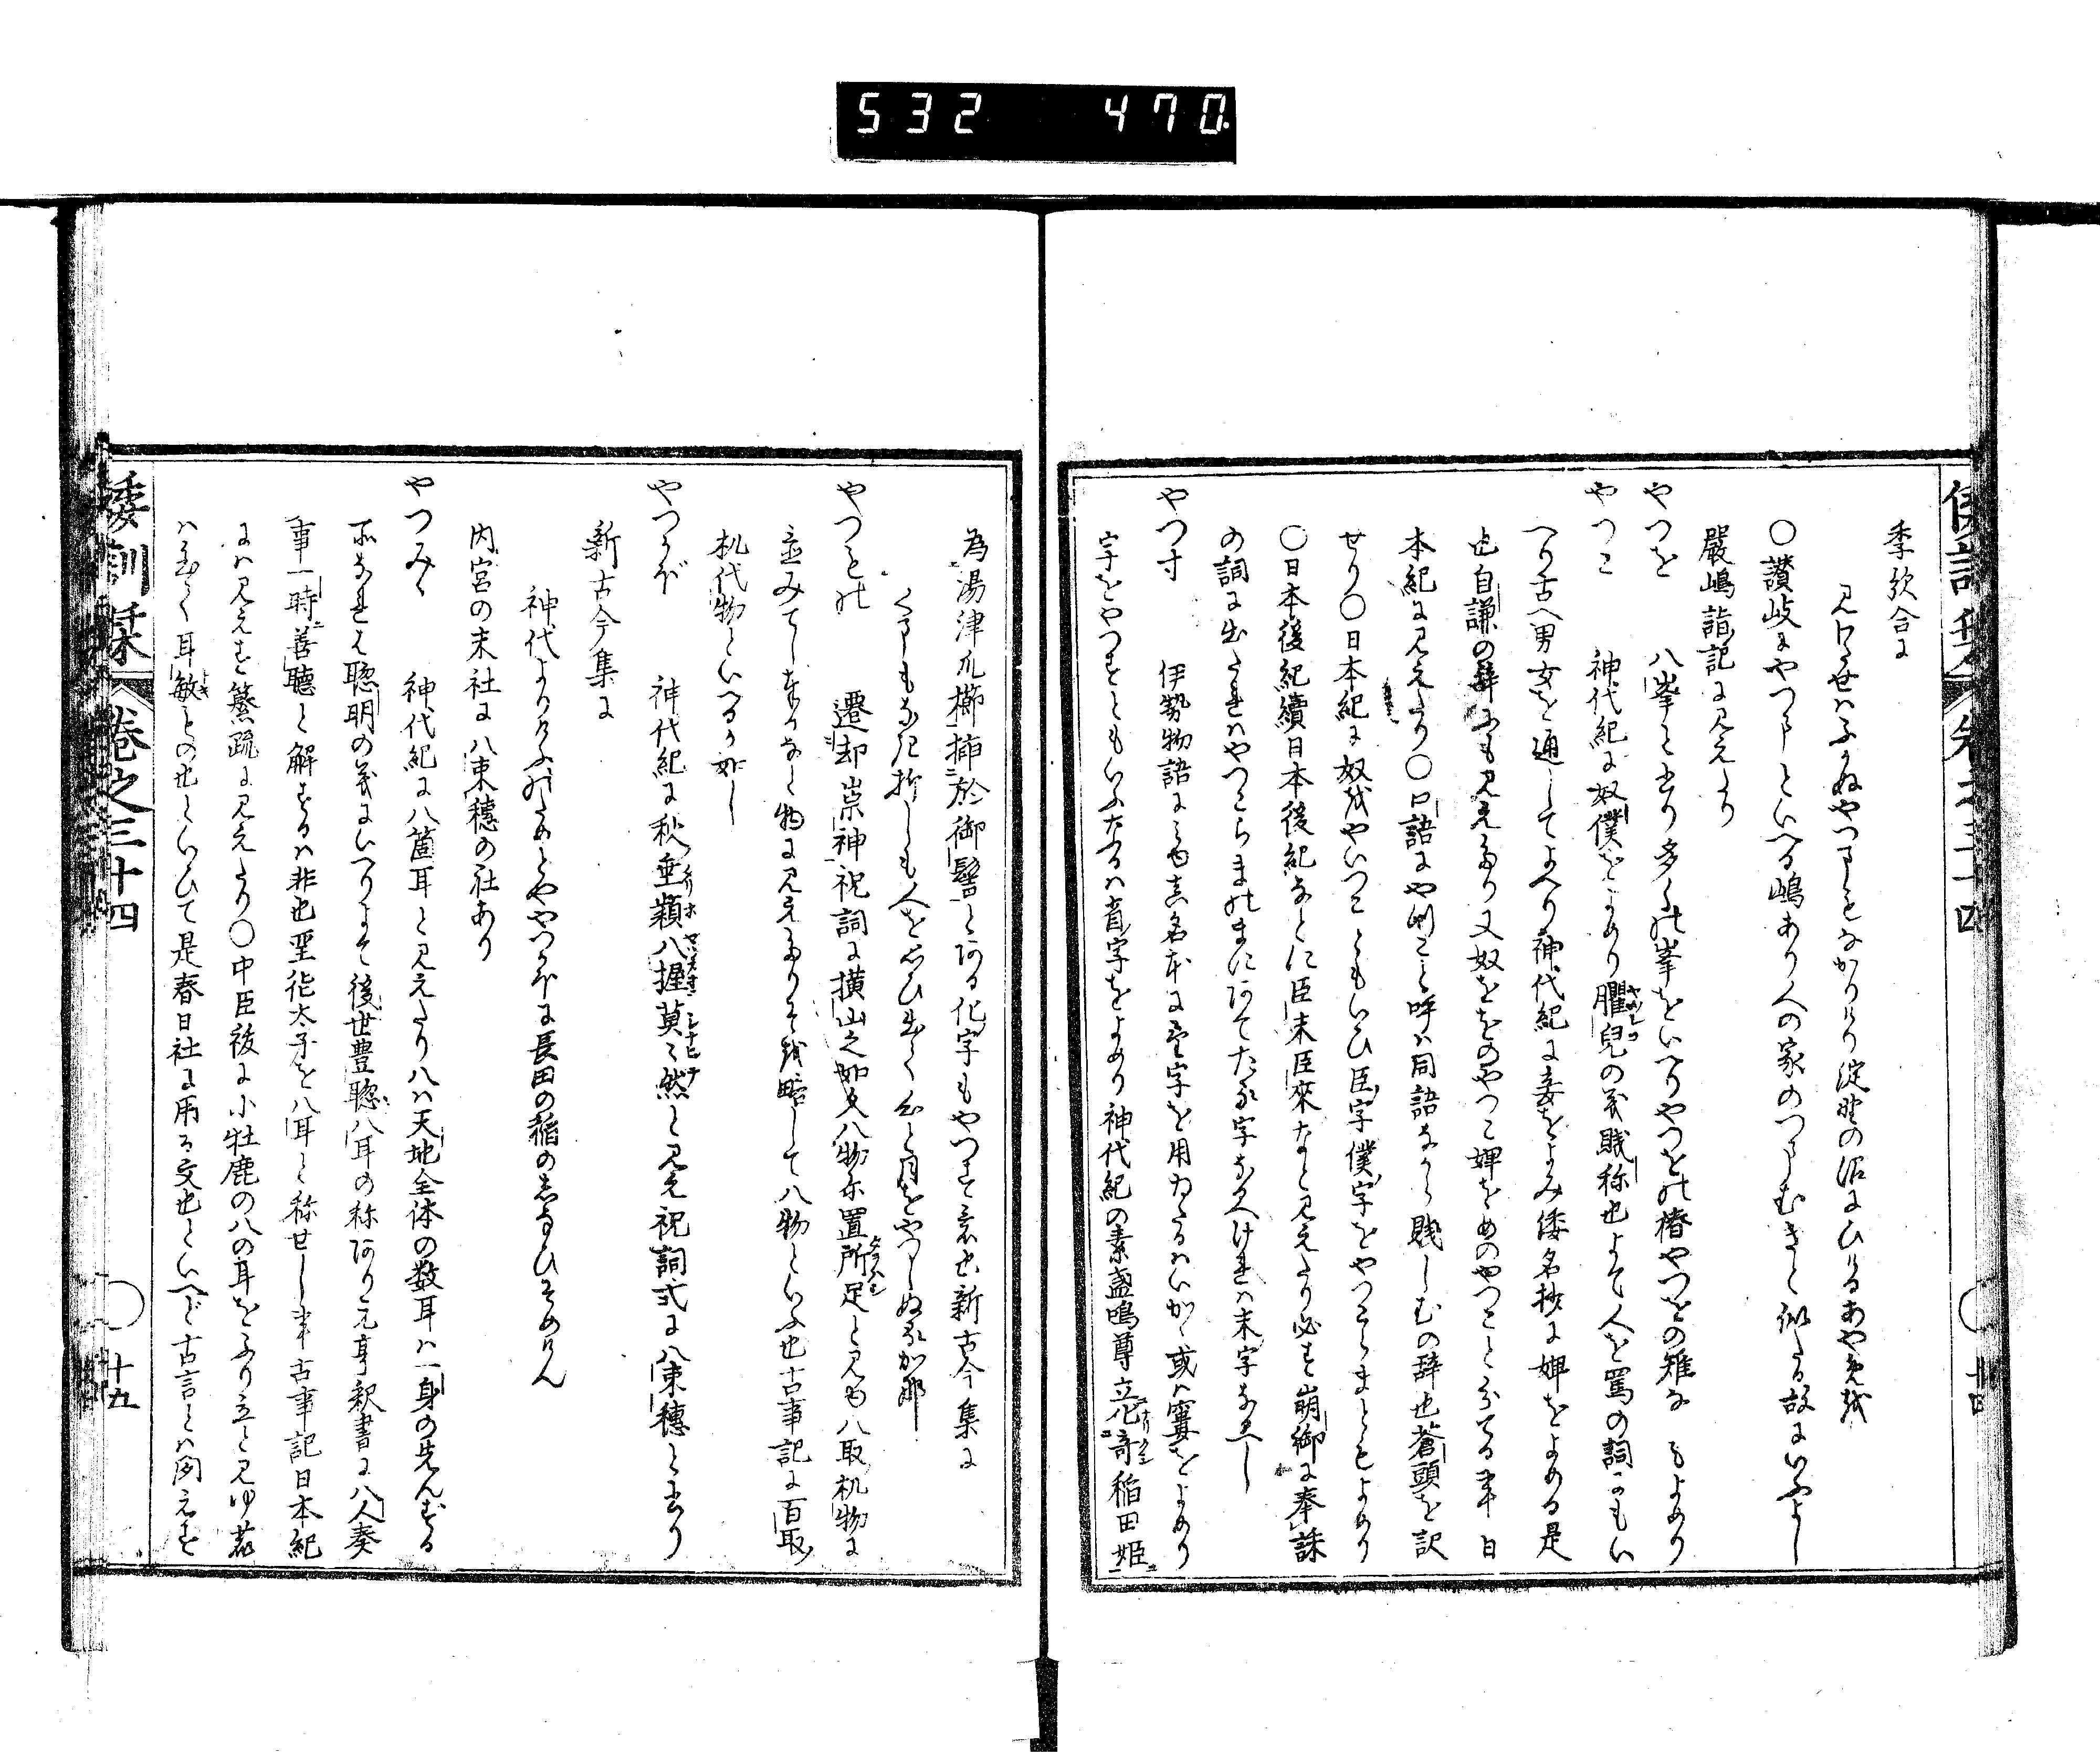 532 470
倭訓栞 卷之三十四
季歌合に
見わたせはふかぬやつまもなかりけり淀野の沼にひけるあやめ
○讃岐にやつまといへる嶋あり人の家のつまむきに似たる故にいふよし
嚴嶋詣記に見えたり
やつを 八峯と書り多くの峯をいへりやつをの椿やつをの雉なともよめり
やつこ 神代紀に奴僕をよめり臞兒の義賤称也よて人を罵の詞にもい
へり古へ男女を通してよへり神代紀に妾をよみ倭名抄に婢をよめる是
也自謙の辞にも見えたり又奴ををのやつこ婢をめのやつことよる事日
本紀に見えたり○口語にやつこと呼は同語なから賤しむの辞也蒼頭を訳
せり○日本紀に奴をやいつこともいひ臣字僕字をやつこらまともよめり
○日本後紀續日本後紀なとに臣末臣來なと見えたり必す崩御に奉誄
の詞に出たれはやつこらまのまにあてたる字なるへけれは末字なるへし
やつす 伊勢物語にみゆ真名本に字を用ゐたるはいかゝ或は窶をよめり
字をやつすともいふたるは字をよめり神代紀の素盞嗚尊立化奇稲田姫
為湯津爪櫛插於御髻とある化字もやつす意也新古今集に
くまもなき折しも人を思ひ出て心と月をやつしぬるかな
やつもの 遷却崇神祝詞に横山之如久八物尓置所足と見ゆ八取机物に
並みてしまりなと物に見えたりそを略して八物といふ也古事記に百取
机代物といへるか如し
やつかほ 神代紀に秋垂穎八握莫々然と見え祝詞式に八束穗と書り
新古今集に
神代よりけふのためとややつかほに長田の稲のしなひそめけん
内宮の末社に八束穗の社あり
やつみゝ 神代紀に八箇耳と見えたり八は天地全体の数耳は一身の先んする
所なれは聡明の義にいへりよて後世豊聡八耳の称あり元亨釈書に八人奏
事一時善聴と解するは非也聖徳太子を八耳と称せし事古事記日本紀
には見えす纂疏に見えたり○中臣祓に小牡鹿の八の耳をふり立と見ゆ
は耳敏との也といひて是春日社に用る文也といへと古言とは聞えす
倭訓栞 卷之三十四 十五